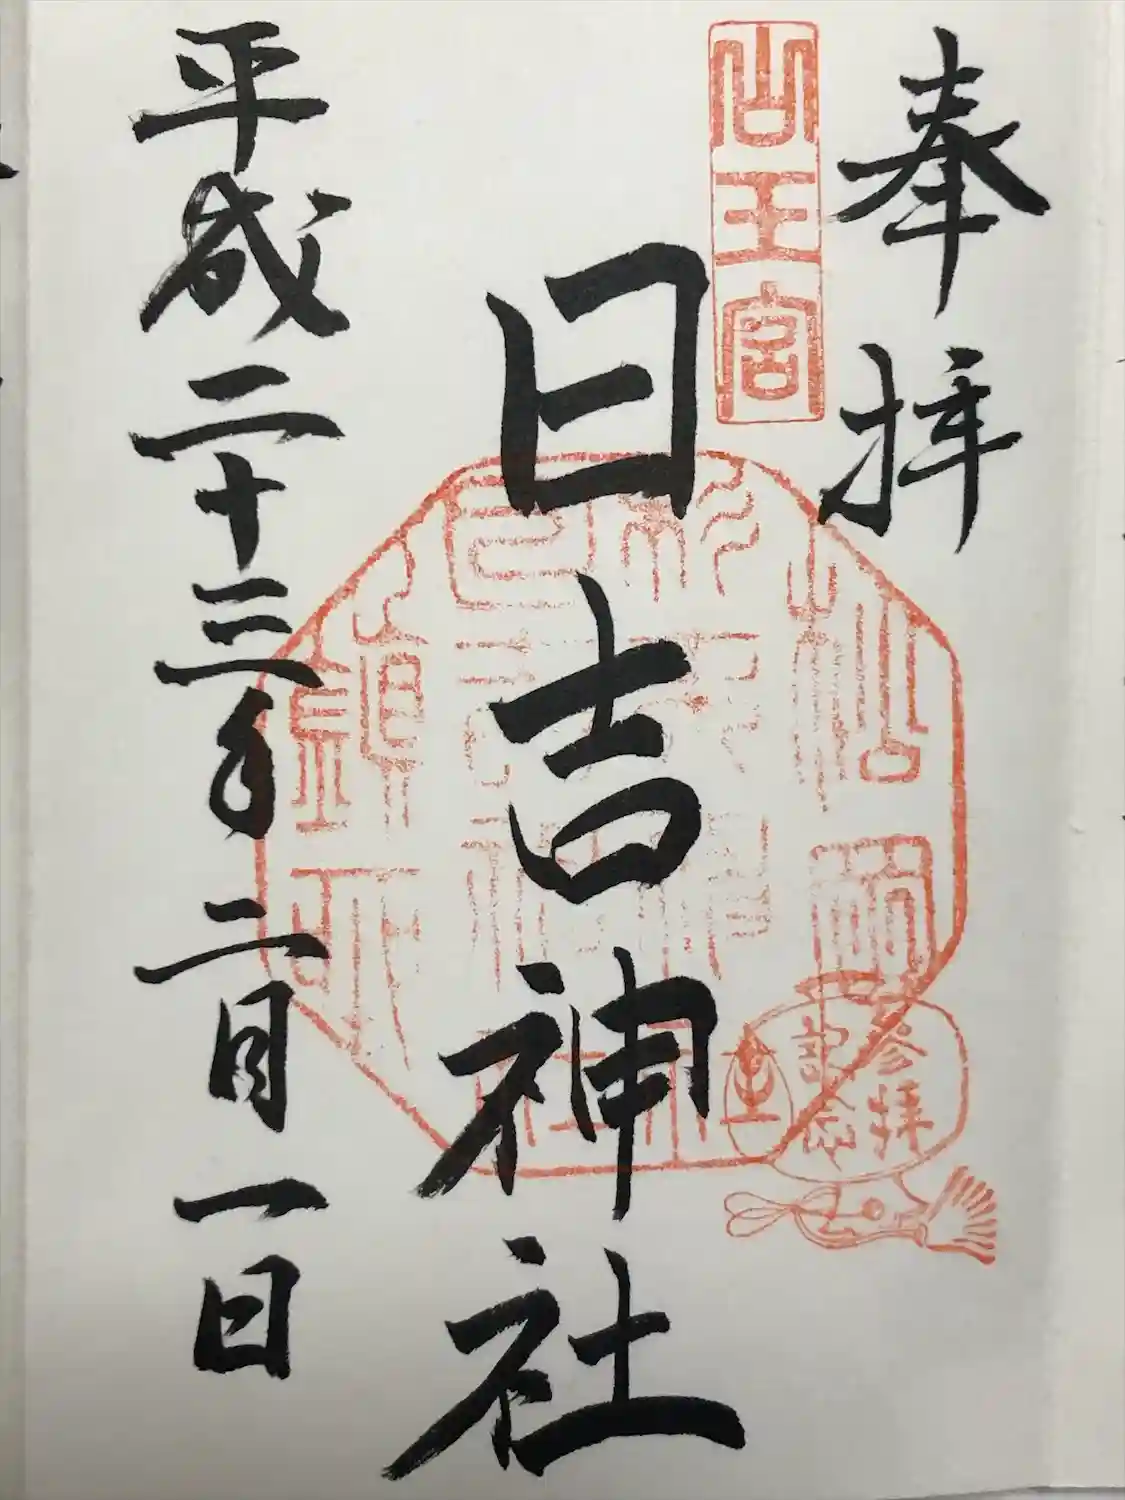 奉拝
山王宮
日吉神社
参拝
記念
平成二十三年二月一日